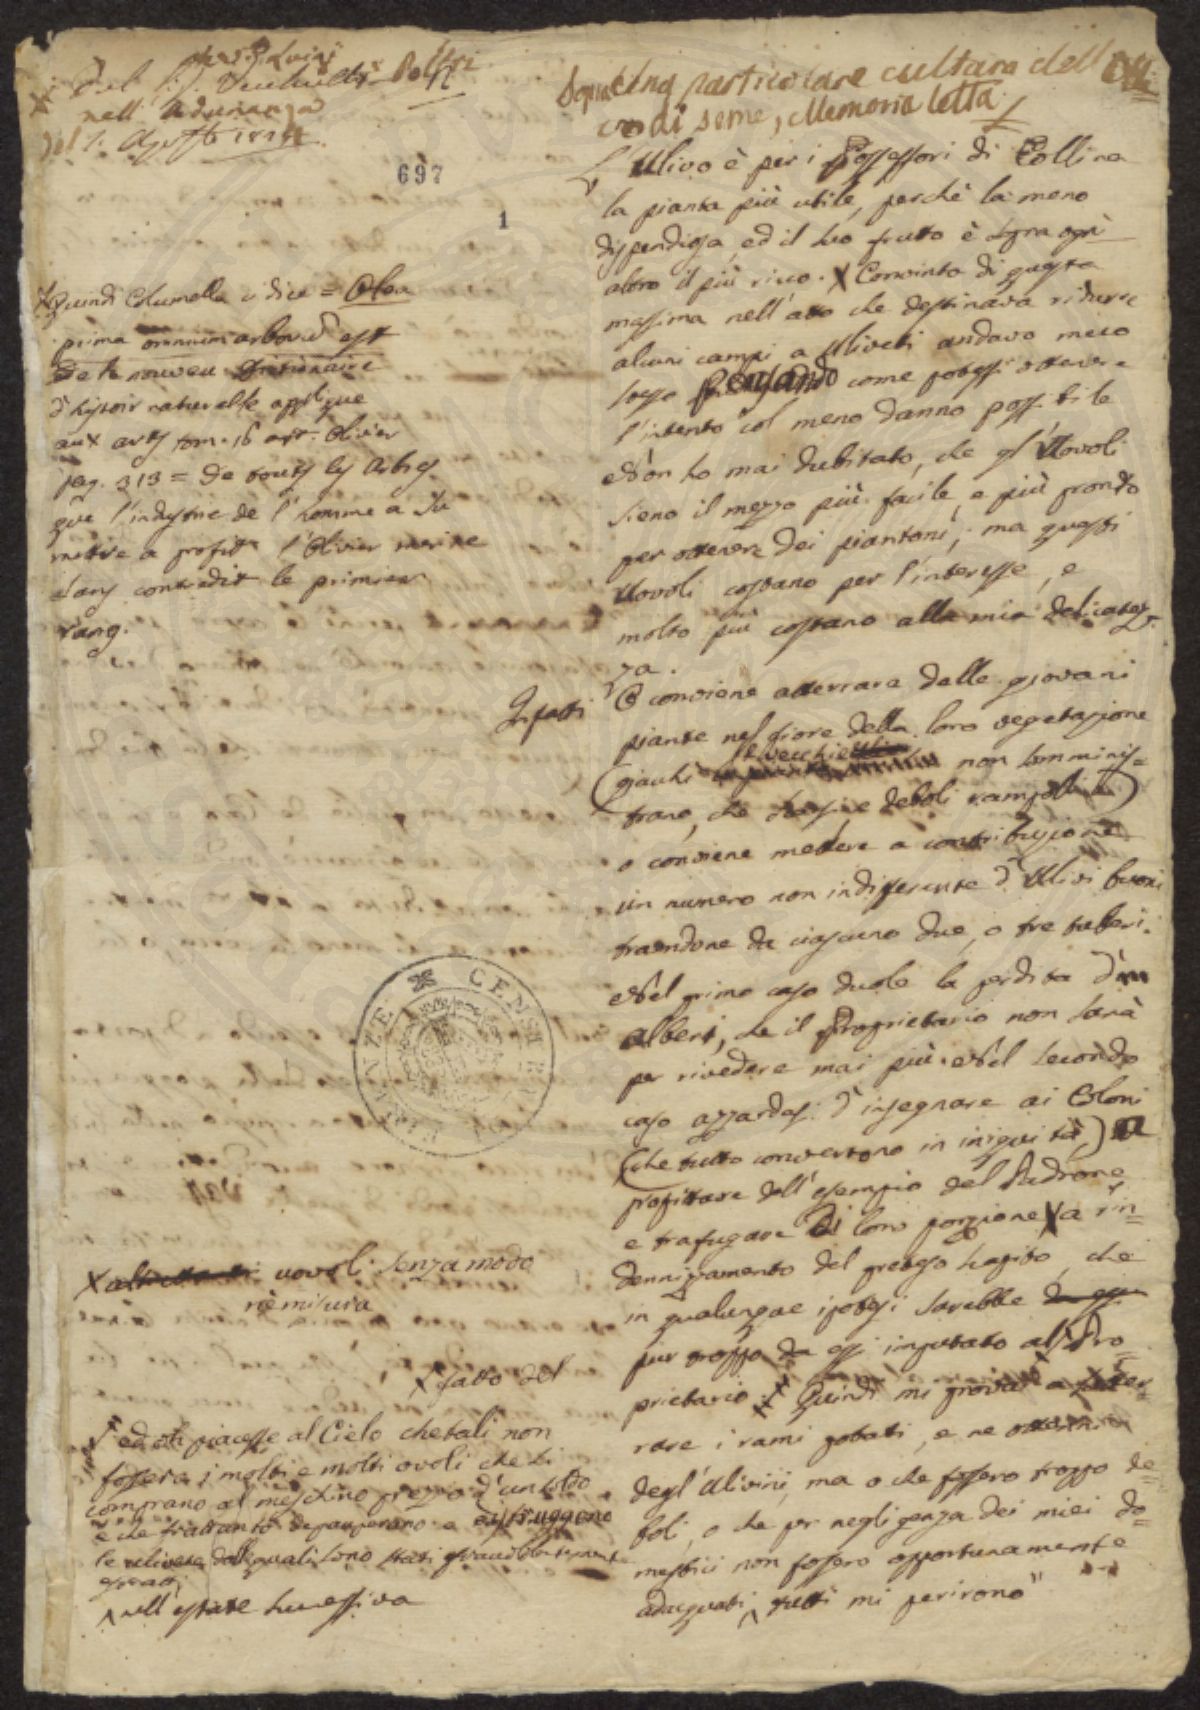 Sopra Una particolare cultura dell'
di seme, Memoria letta
Del
nell'Adunanza
del 7. Agosto
697
1
L'Ulivo è per i Possessori di Collina
la pianta più utile, perchè la meno
dispendiosa, ed il suo frutto è sopra ogni
altro il più ricco. X Convinto di questa
massima nell'atto che destinava ridurre
alcuni campi a Uliveti andavo meco
stesso pensando come potessi ottenere
l'intento col meno danno possibile
Non ho mai dubitato, che gl'Uovoli
sieno il mezzo più facile, e più pronto
per ottenere dei piantoni; ma questi
Uovoli costano per l'interesse, e
molto più costano alla mia delicatez-
za.
Infatti O conviene atterrare delle giovani
piante nel fiore della loro vegetazione
(giacchè le vecchie non somminis-
trano, che deboli rampolli)
o conviene mettere a contribuzione
un numero non indifferente d'Ulivi buoni
traendone da ciascuno due, o tre tuberi.
Nel primo caso duole la perdita d'un
albero, che il Proprietario non sarà
per rivedere mai più. Nel secondo
caso azzardasi d'insegnare ai Coloni
(che tutto convertono in iniquità,) a
profittare dell'esempio del Padrone
e trafugare di loro porzione X a rin-
dennizamento del preteso scapito, che
in qualunque ipotesi sarebbe
pur troppo da essi imputato al Pro-
prietario. Quindi mi provai a sotter-
rare i rami potati, e ne ottenni
degl'Ulivini, ma o che fossero troppo de-
boli, o che per negligenza dei miei do-
mestici non fossero opportunamente
adacquati, tutti mi perirono"
X Quindi Columella ci dice = Olea
prima omnium arborum est
De le nouveu Dictionaire
d'histoir naturelle applique
aux arts tom. 16 art. Olivier
pag. 313 = De touts les Arbres
que l'industrie de l'homme a su
mettre a profit l'Olivier merite
sans contredit le primier
rang.
CENTR
FIRENZE
X uovoli senza modo
nè misura
X fatto del
ed oh piacesse al Cielo che tali non
fossero i molti e molti ovoli che si
comprano al meschino prezzo d'un soldo
e che frattanto depauperano e distruggono
le ulivete dalle quali sono stati
estratti
nell'estate successiva